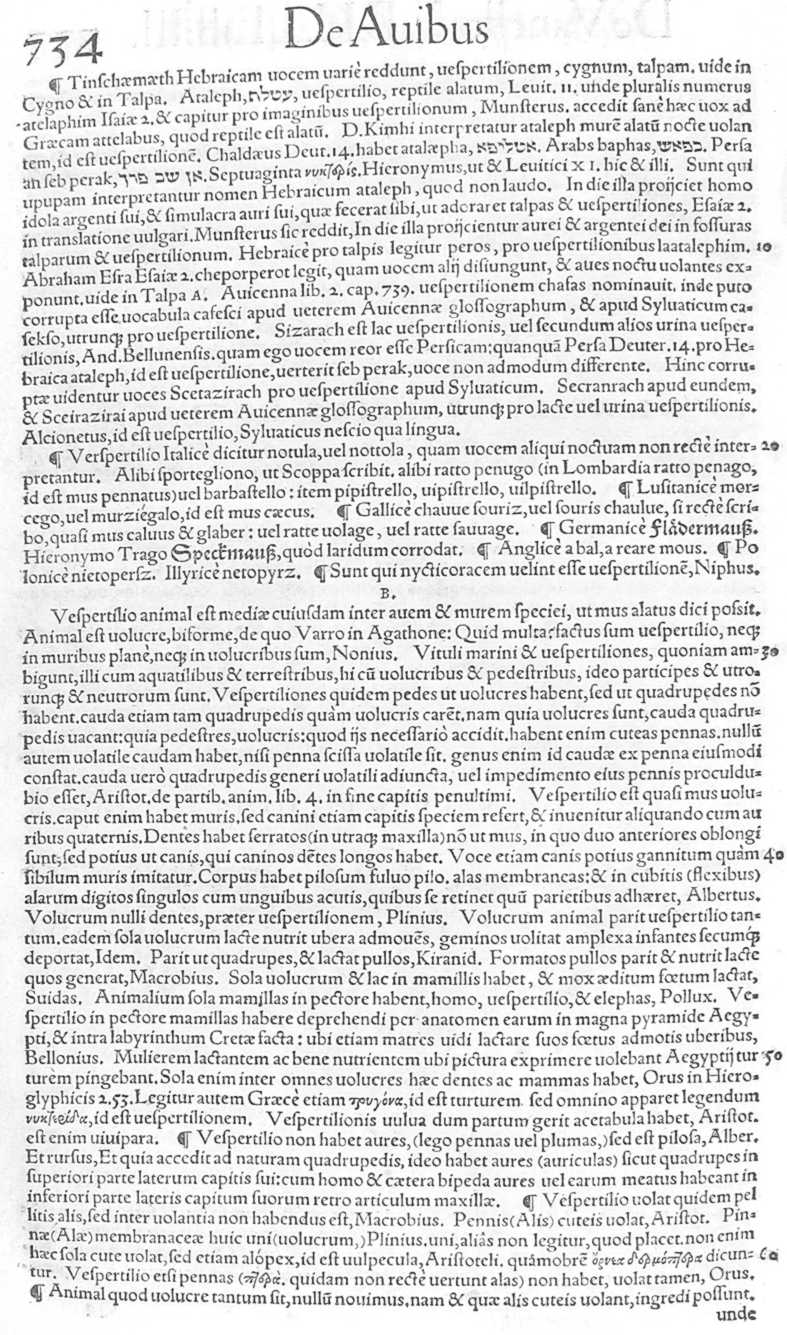 734 De Auibus
¶ Tinschæmæth Hebraicam uocem uariè reddunt, uespertilionem, cygnum, talpam. uide in
Cygno & in Talpa. Ataleph, עטלף, uespertilio, reptile alatum, Leuit. 11. unde pluralis numerus
atelaphim Isaiæ 2. & capitur pro imaginibus uespertilionum, Munsterus. accedit sanè hæc uox ad
Græcam attelabus, quod reptile est alatū. D. Kimhi interpretatur ataleph murē alatū nocte uolan
tem, id est uespertilionē. Chaldæus Deut. 14. habet atalæpha, Arabs baphas, Persa
an seb perak, Septuaginta νυκτερίς. Hieronymus, ut & Leuitici XI. hic & illi. Sunt qui
upupam interpretantur nomen Hebraicum ataleph, quod non laudo. In die illa proijciet homo
idola argenti sui, & simulacra auri sui, quæ fecerat sibi, ut adoraret talpas & uespertiliones, Esaiæ 2.
in translatione uulgari. Munsterus sic reddit, In die illa proijcientur aurei & argentei dei in fossuras
talparum & uespertilionum. Hebraicè pro talpis legitur peros, pro uespertilionibus laatalephim. 10
Abraham Esra Esaiæ 2. cheporperot legit, quam uocem alij disiungunt, & aues noctu uolantes ex-
ponunt. uide in Talpa A. Auicenna lib. 2. cap. 739. uespertilionem chafas nominauit. inde puto
corrupta esse uocabula cafesci apud ueterem Auicennæ glossographum, & apud Syluaticum ca-
sekso, utrunq; pro uespertilione. Sizarach est lac uespertilionis, uel secundum alios urina uesper-
tilionis, And. Bellunensis. quam ego uocem reor esse Persicam: quanquā Persa Deuter. 14. pro He-
braica ataleph, id est uespertilione, uerterit seb perak, uoce non admodum differente. Hinc corru-
ptæ uidentur uoces Scetazirach pro uespertilione apud Syluaticum. Secranrach apud eundem,
& Sceirazirai apud ueterem Auicennæ glossographum, utrunq; pro lacte uel urina uespertilionis.
Alcionetus, id est uespertilio, Syluaticus nescio qua lingua.
¶ Verspertilio Italicè dicitur notula, uel nottola, quam uocem aliqui noctuam non rectè inter- 20
pretantur. Alibi sportegliono, ut Scoppa scribit. alibi ratto penugo (in Lombardia ratto penago,
id est mus pennatus) uel barbastello: item pipistrello, uipistrello, uilpistrello. ¶ Lusitanicè mor-
cego, uel murziégalo, id est mus cæcus. ¶ Gallicè chauue souriz, uel souris chaulue, si rectè scri-
bo, quasi mus caluus & glaber: uel ratte uolage, uel ratte sauuage. ¶ Germanicè Flädermauß.
Hieronymo Trago Speckmauß, quòd laridum corrodat. ¶ Anglicè a bal, a reare mous. ¶ Po
lonicè nietopersz. Illyricè netopyrz. ¶ Sunt qui nycticoracem uelint esse uespertilionē, Niphus.
B.
Vespertilio animal est mediæ cuiusdam inter auem & murem speciei, ut mus alatus dici possit.
Animal est uolucre, biforme, de quo Varro in Agathone: Quid multa? factus sum uespertilio, neq;
in muribus planè, neq; in uolucribus sum, Nonius. Vituli marini & uespertiliones, quoniam am- 30
bigunt, illi cum aquatilibus & terrestribus, hi cū uolucribus & pedestribus, ideo participes & utro-
runq; & neutrorum sunt. Vespertiliones quidem pedes ut uolucres habent, sed ut quadrupedes nō
habent. cauda etiam tam quadrupedis quàm uolucris carēt. nam quia uolucres sunt, cauda quadru-
pedis uacant: quia pedestres, uolucris: quod ijs necessariò accidit. habent enim cuteas pennas. nullū
autem uolatile caudam habet, nisi penna scissa uolatile sit. genus enim id caudæ ex penna eiusmodi
constat. cauda uerò quadrupedis generi uolatili adiuncta, uel impedimento eius pennis proculdu-
bio esset, Aristot. de partib. anim. lib. 4. in fine capitis penultimi. Vespertilio est quasi mus uolu-
cris. caput enim habet muris, sed canini etiam capitis speciem refert, & inuenitur aliquando cum au
ribus quaternis. Dentes habet serratos (in utraq; maxilla) nō ut mus, in quo duo anteriores oblongi
sunt, sed potius ut canis, qui caninos dētes longos habet. Voce etiam canis potius gannitum quàm 40
sibilum muris imitatur. Corpus habet pilosum fuluo pilo. alas membraneas: & in cubitis (flexibus)
alarum digitos singulos cum unguibus acutis, quibus se retinet quū parietibus adhæret, Albertus.
Volucrum nulli dentes, præter uespertilionem, Plinius. Volucrum animal parit uespertilio tan-
tum. eadem sola uolucrum lacte nutrit ubera admouēs, geminos uolitat amplexa infantes secumq́;
deportat, Idem. Parit ut quadrupes, & lactat pullos, Kiranid. Formatos pullos parit & nutrit lacte
quos generat, Macrobius. Sola uolucrum & lac in mamillis habet, & mox æditum fœtum lactat,
Suidas. Animalium sola mamillas in pectore habent, homo, uespertilio, & elephas, Pollux. Ve-
spertilio in pectore mamillas habere deprehendi per anatomen earum in magna pyramide Aegy-
pti, & intra labyrinthum Cretæ facta: ubi etiam matres uidi lactare suos fœtus admotis uberibus,
Bellonius. Mulierem lactantem ac bene nutrientem ubi pictura exprimere uolebant Aegyptij tur 50
turem pingebant. Sola enim inter omnes uolucres hæc dentes ac mammas habet, Orus in Hiero-
glyphicis 2. 53. Legitur autem Græcè etiam τρυγόνα, id est turturem. sed omnino apparet legendum
νυκτερίδα, id est uespertilionem. Vespertilionis uulua dum partum gerit acetabula habet, Aristot.
est enim uiuipara. ¶ Vespertilio non habet aures, (lego pennas uel plumas,) sed est pilosa, Alber.
Et rursus, Et quia accedit ad naturam quadrupedis, ideo habet aures (auriculas) sicut quadrupes in
superiori parte laterum capitis sui: cum homo & cætera bipeda aures uel earum meatus habeant in
inferiori parte lateris capitum suorum retro articulum maxillæ. ¶ Vespertilio uolat quidem pel
litis alis, sed inter uolantia non habendus est, Macrobius. Pennis (Alis) cuteis uolat, Aristot. Pin-
næ (Alæ) membranaceæ huic uni (uolucrum,) Plinius. uni, aliâs non legitur, quod placet. non enim
hæc sola cute uolat, sed etiam alópex, id est uulpecula, Aristoteli. quamobrē ὄρνεα δερμόπτερα dicun- 60
tur. Vespertilio etsi pennas (πτερὰ. quidam non rectè uertunt alas) non habet, uolat tamen, Orus.
¶ Animal quod uolucre tantum sit, nullū nouimus. nam & quæ alis cuteis uolant, ingredi possunt.
unde